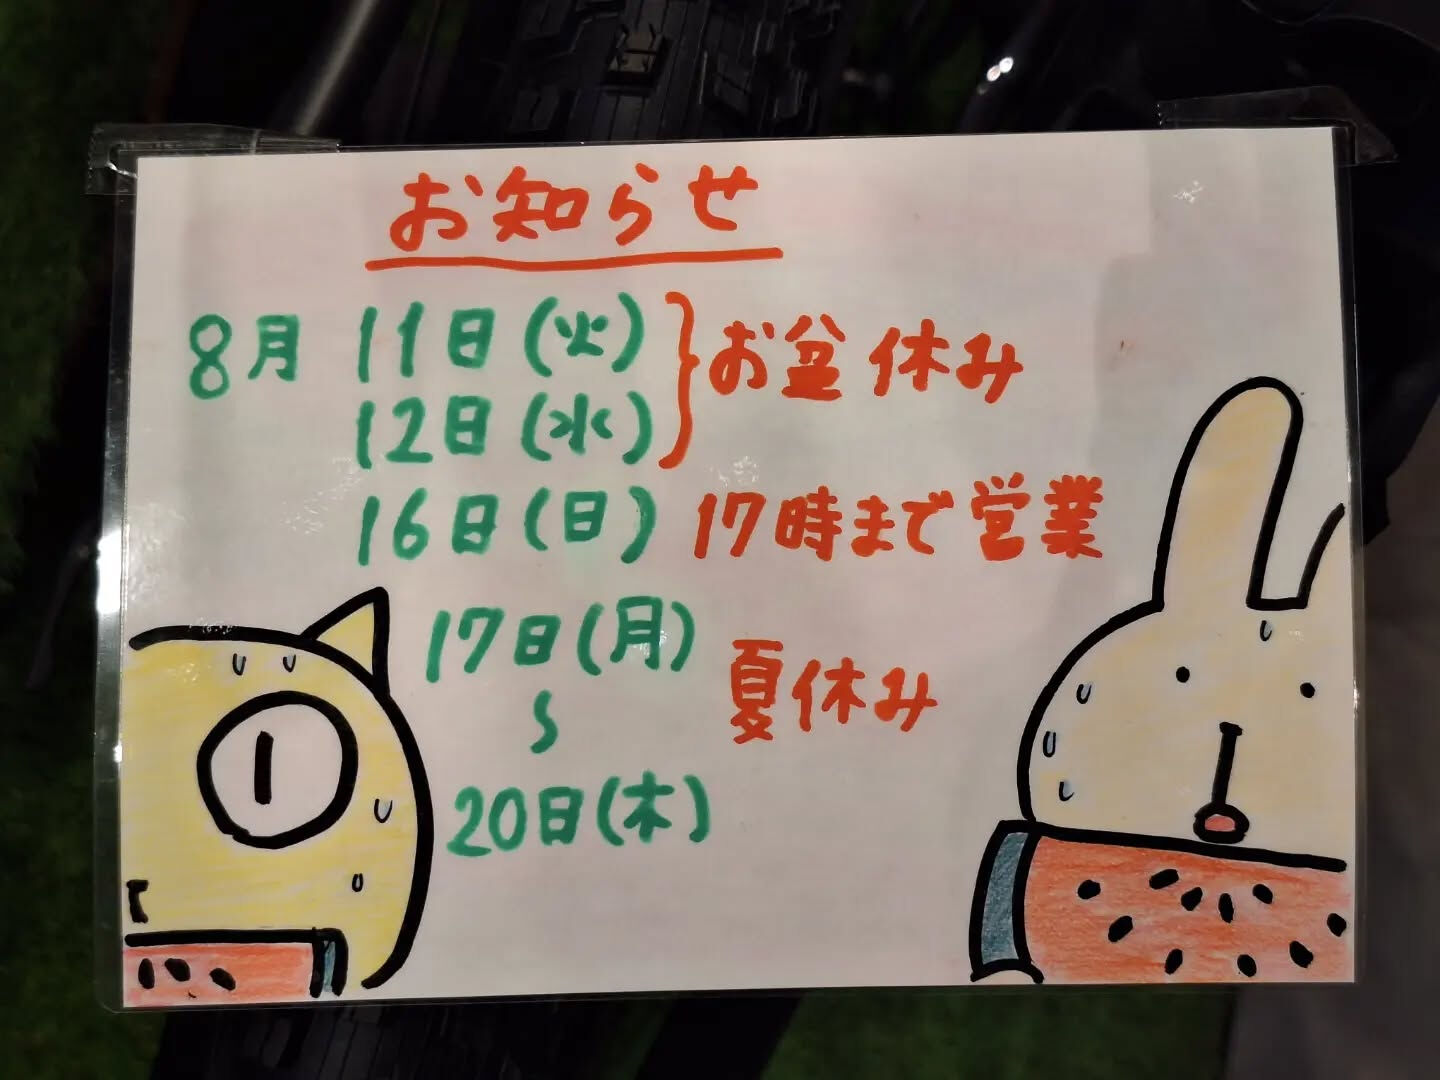 お知らせ
8月 11日(火)
12日(水)
お盆休み
16日(日) 17時まで営業
17日(月)
〜
20日(木)
夏休み